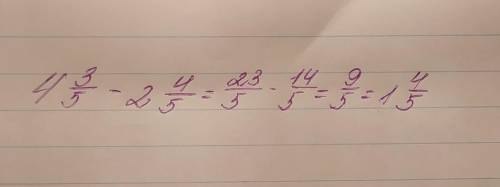 4 3/5 - 2 4/5 = 23/5 - 14/5 = 9/5 = 1 4/5